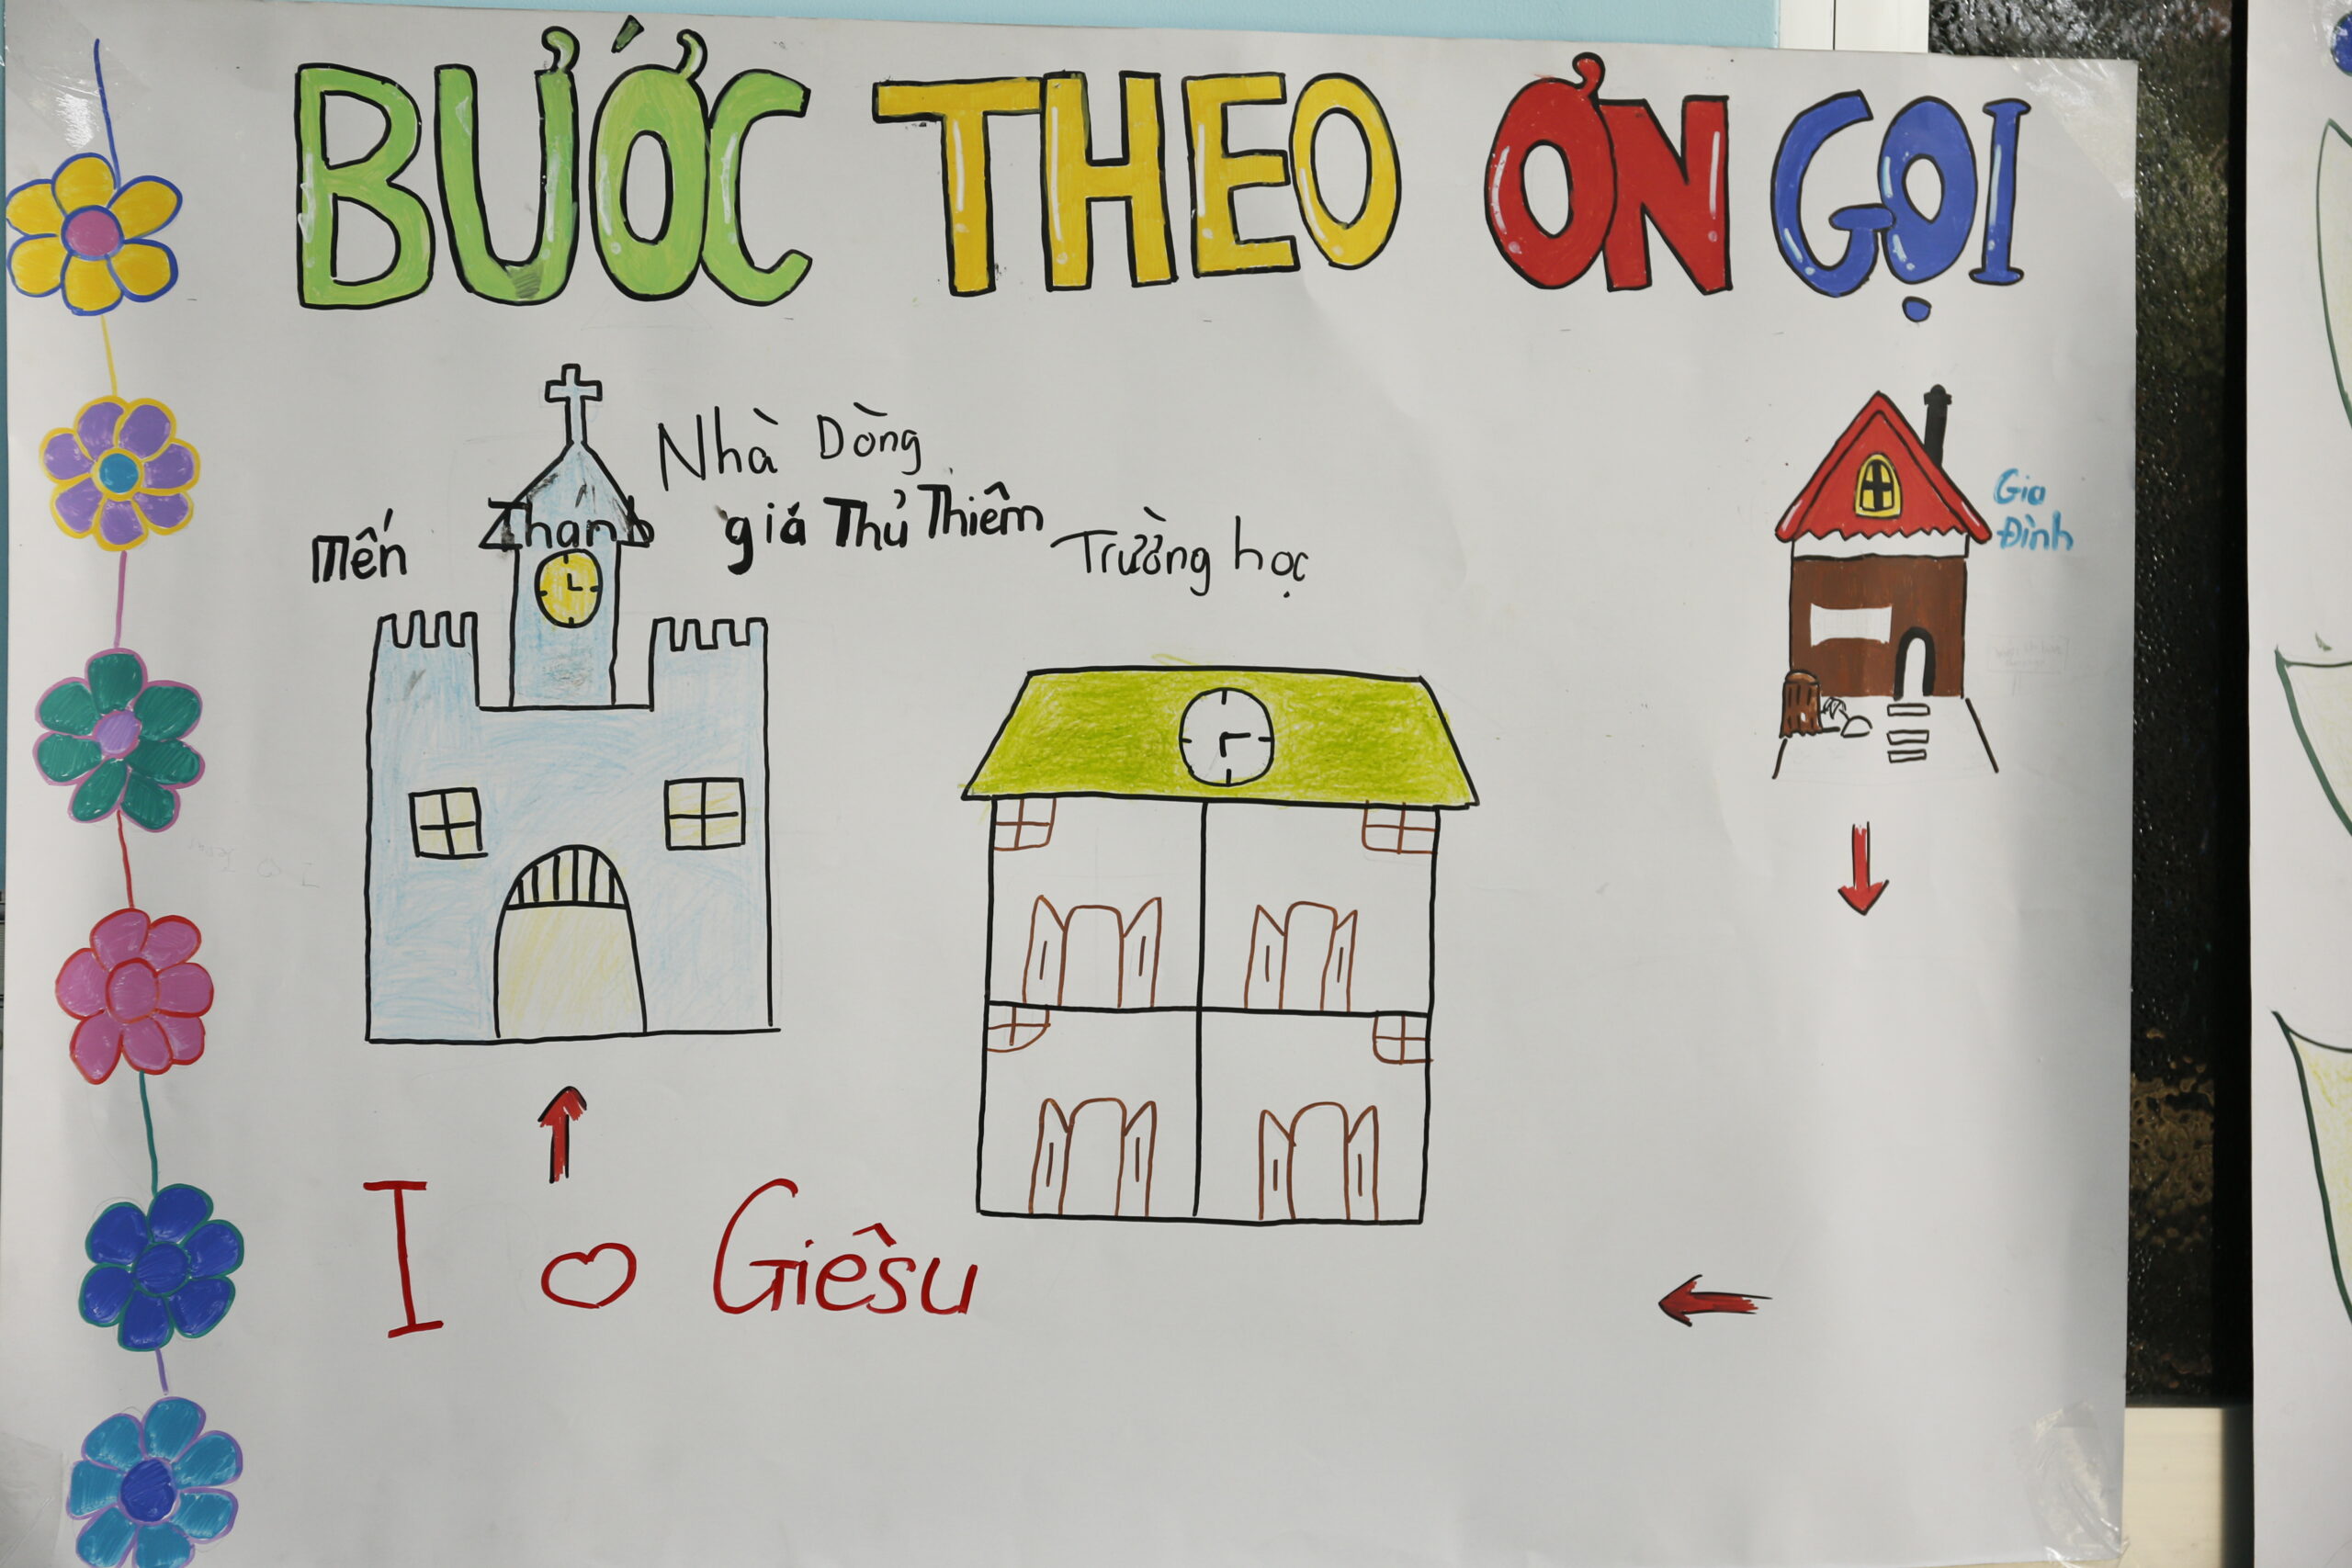 BƯỚC THEO ƠN GỌI
Nhà Dòng
Mến Thánh giá Thủ Thiêm
Trường học
Gia
Đình
I ♡ Giêsu